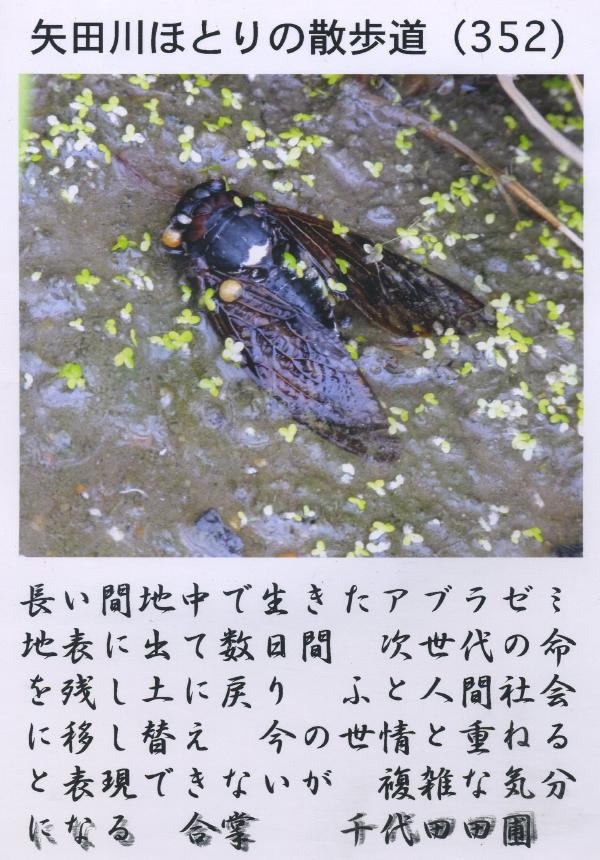 矢田川ほとりの散歩道 (352)
長い間地中で生きたアブラゼミ
地表に出て数日間　次世代の命
を残し土に戻り　ふと人間社会
に移し替え　今の世情と重ねる
と表現できないが　複雑な気分
になる　合掌　　千代田田圃